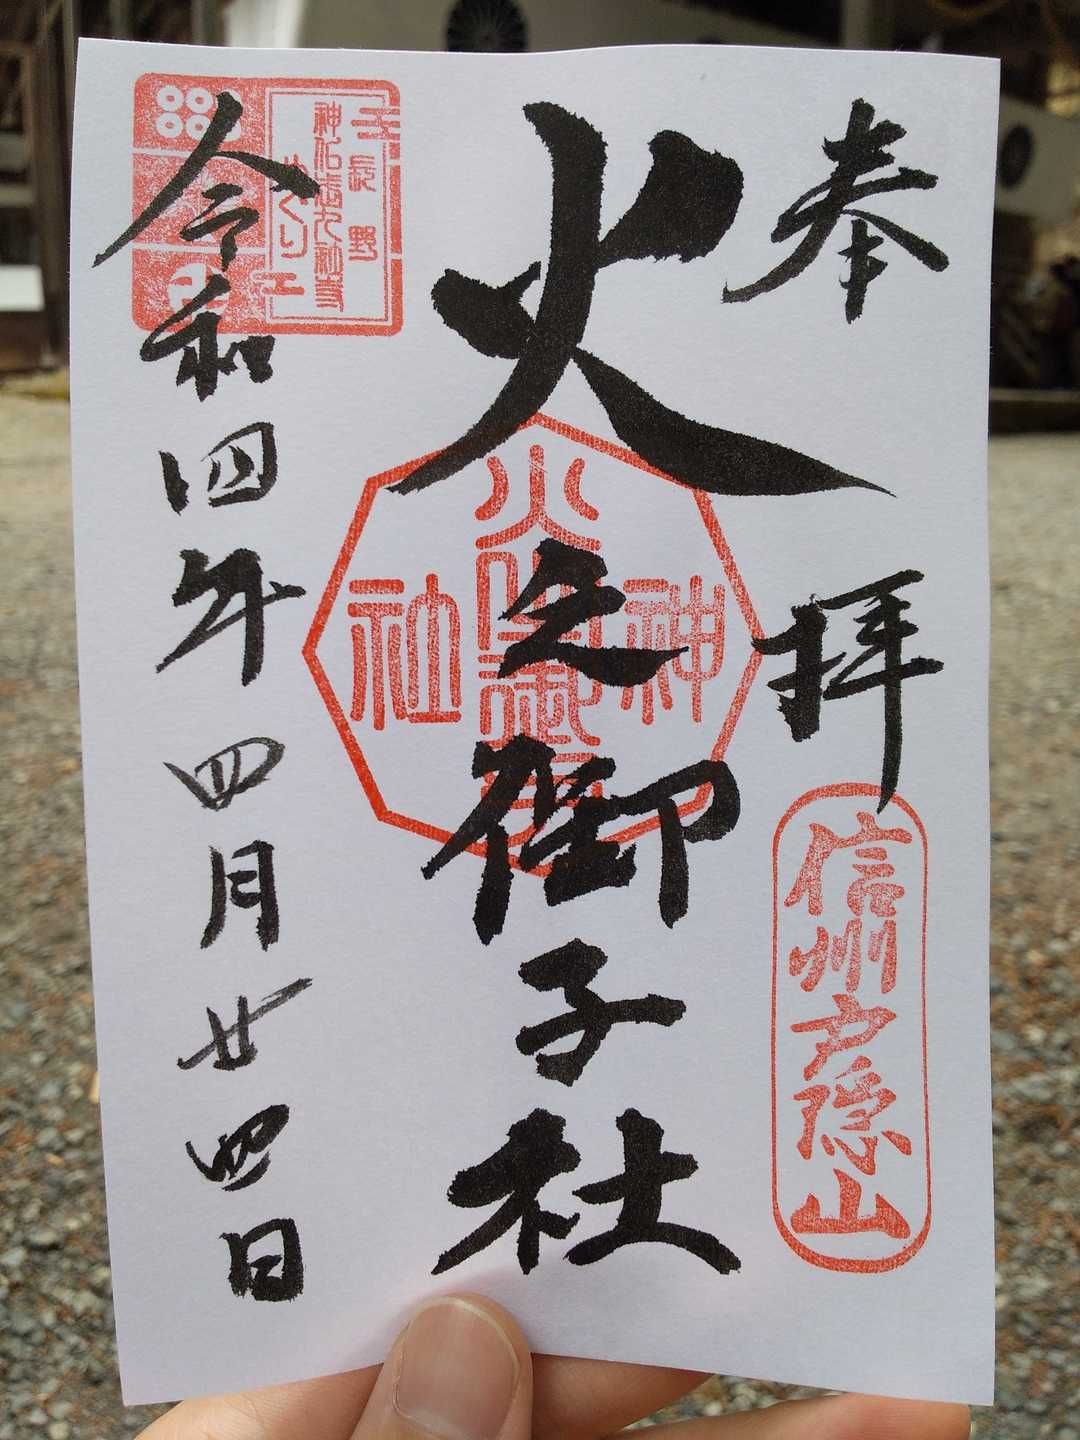 奉拝
信州戸隠山
火之御子社
火之御子
神
社
令和四年四月廿四日
長野
めぐり